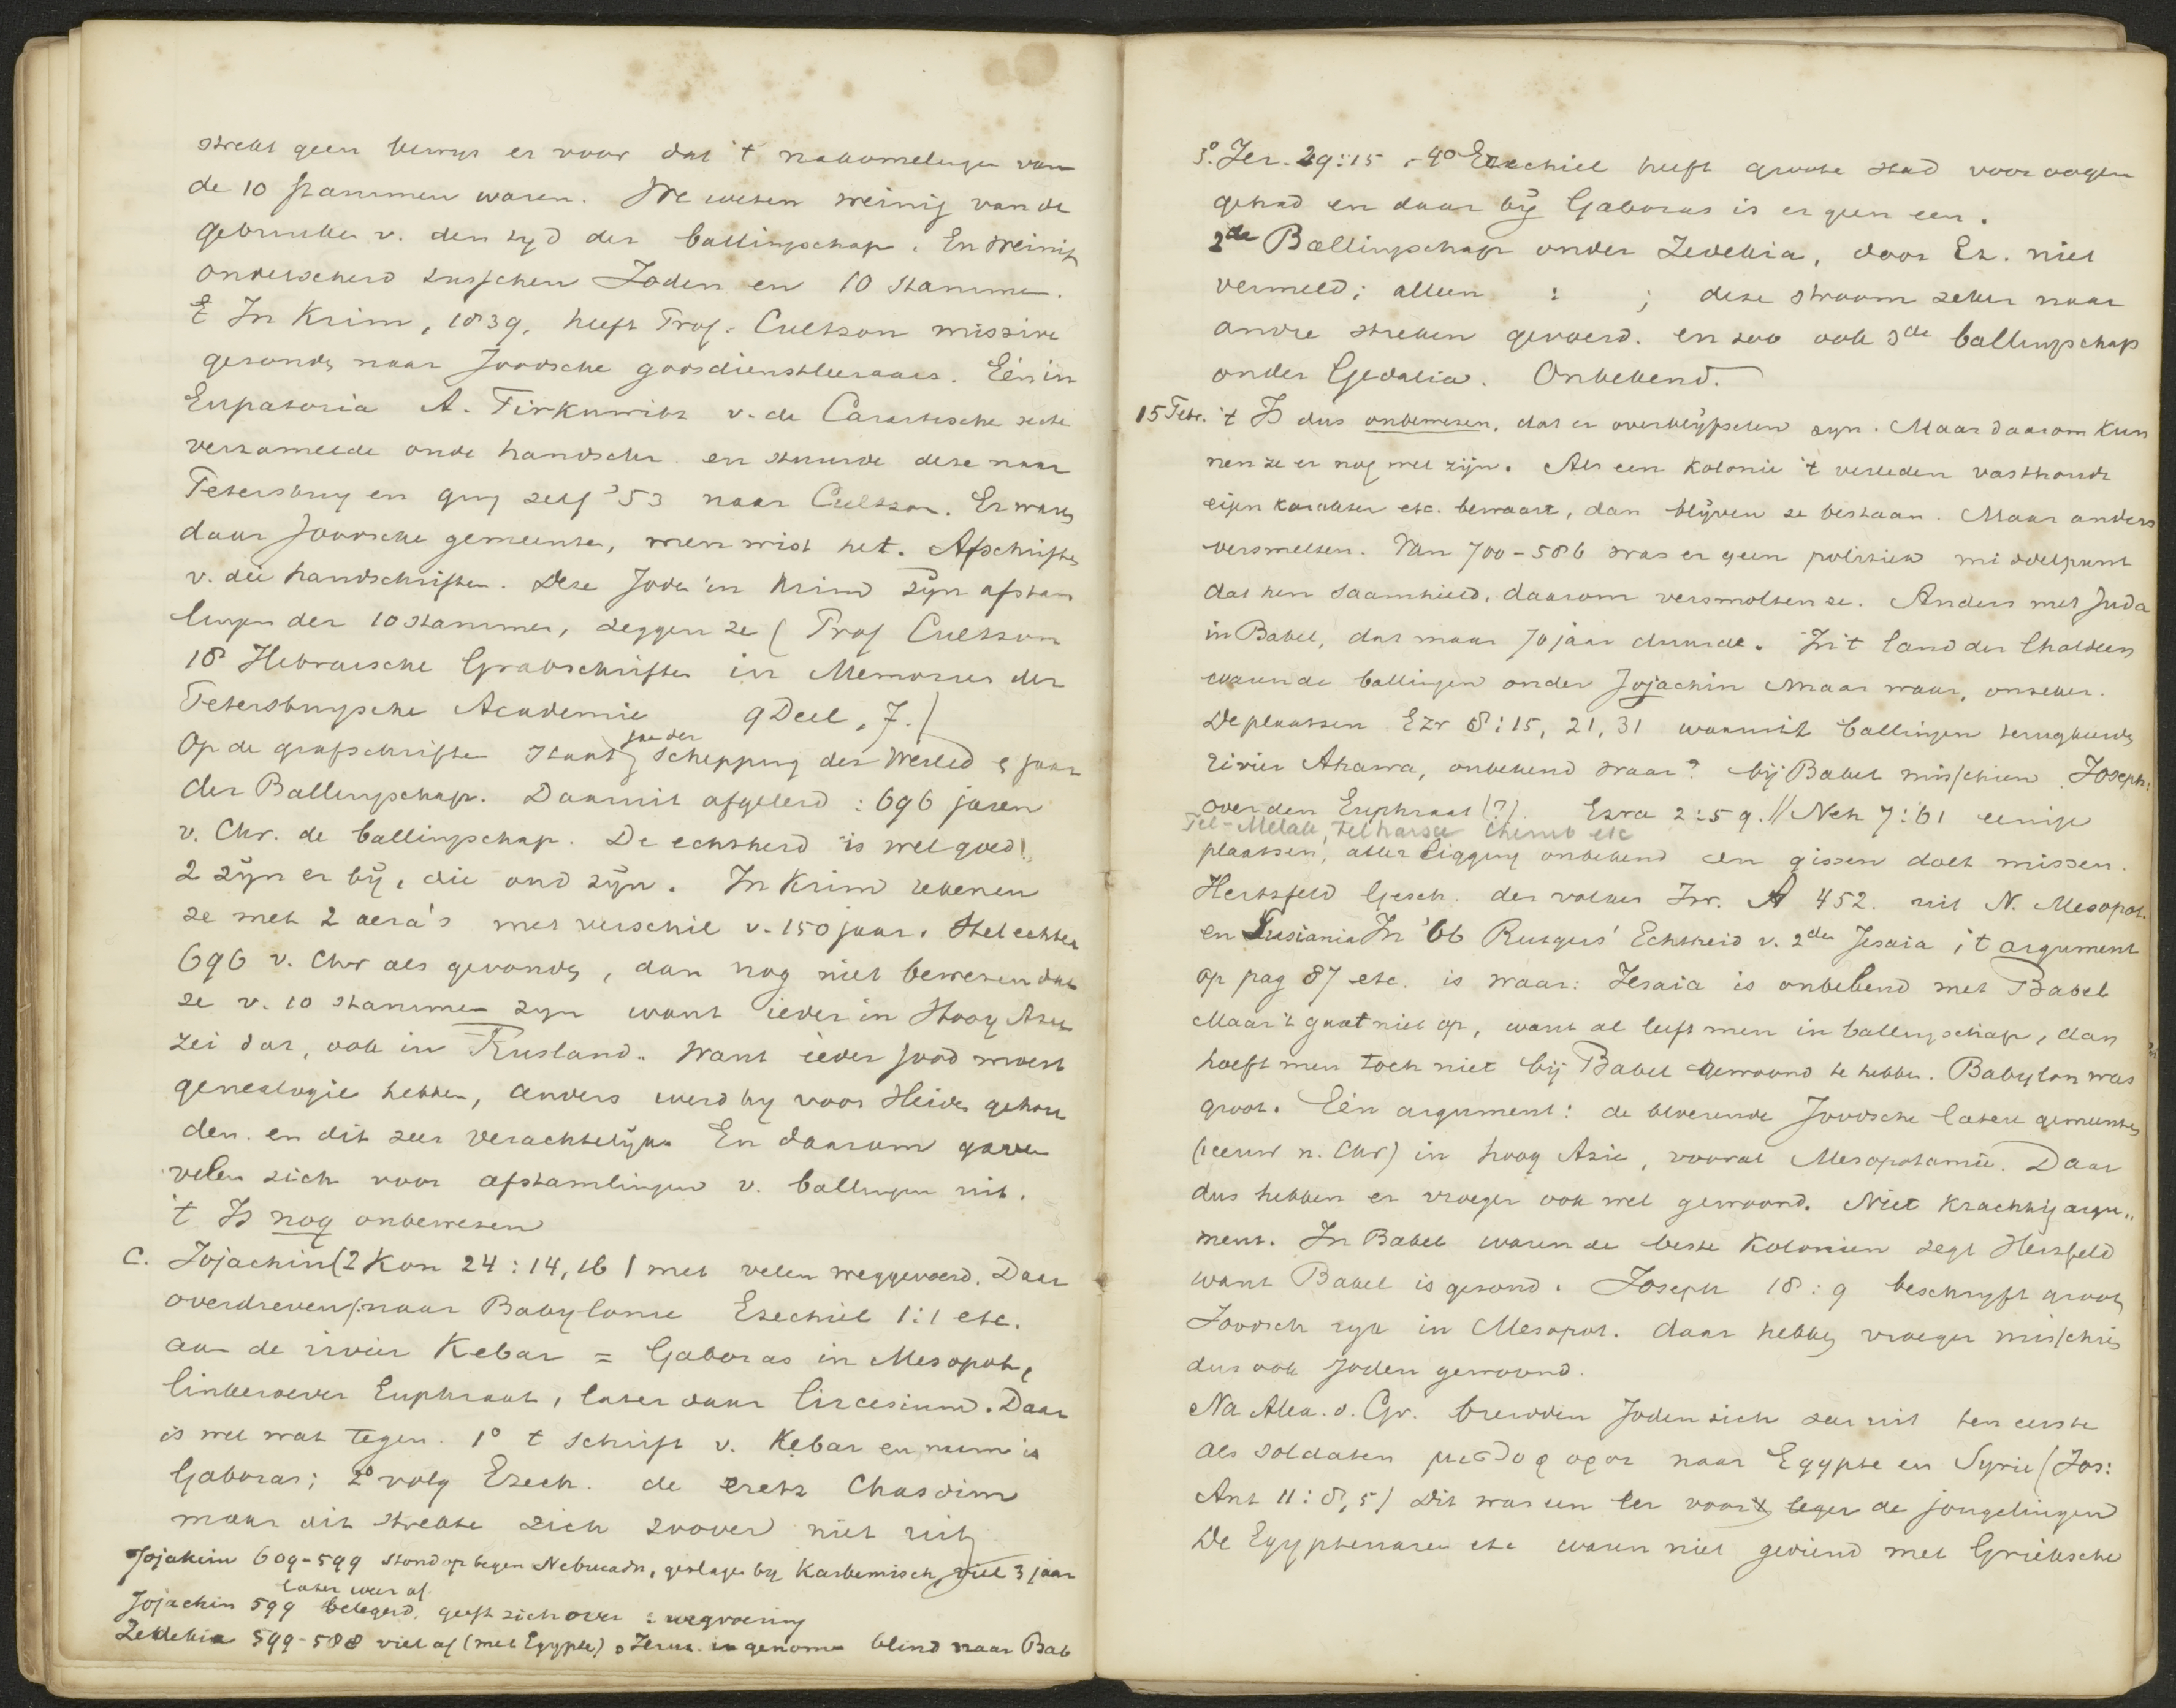 strekt geen bewys er voor dat 't nakomelingen van
de 10 stammen waren. We weten weinig van de
gebruiken v. den tyd der ballingschap. En weinig
onderscheid tusschen Joden en 10 stammen.
In Krim, 1839, heeft Prof. missive
gezonden naar Joodsche godsdienstleeraars. Eén in
Eupatoria A. Firkowitz v. de secte
verzamelde oude handschr. en stuurde deze naar
Petersburg en ging zelf '53 naar Er waren
daar Joodsche gemeenten, men wist het. Afschriften
v. die handschriften. Deze Joden in Krim zyn afstam
lingen der 10 stammen, zeggen ze (Prof
18 Hebraische Grabschriften in Memories der
Petersburgsche Academie 9 Deel, 7.)
Op de grafschriften staat jaar der schepping der Wereld & jaar
der Ballingschap. Daaruit afgeleid: 696 jaren
v. Chr. de ballingschap. De echtheid is wel goed!
2 zÿn er bÿ, die oud zÿn. In Krim rekenen
ze met 2 aera's met verschil v. 150 jaar. Stel echter
696 v. Chr als gevonden, dan nog niet bewezen dat
ze v. 10 stammen zyn want ieder in Hoog Azië
zei dat, ook in Rusland. Want ieder Jood moest
genealogie hebben, anders werd hy voor Heiden gehou
den. en dit zeer verachtelÿk. En daarom gaven
velen zich voor afstamlingen v. ballingen uit.
't Is nog onbewezen
C. Jojachin (2 Kon 24:14, 16) met velen weggevoerd. Daar
overdreven/: naar Babylonie Ezechiel 1:1 etc.
aan de rivier Kebar = Gaboras in Mesopot.,
linkeroever Euphraat, later daar Circesium. Daar
is wel wat tegen. 1° 't schrift v. Kebar en is
Gaboras; 2° volg Ezech. de eretz Chasdim
maar dit strekte zich zoover niet uit,
Jojakim 609-599 stond op tegen Nebucadn., geslagen by Karkemisch, viel 3 jaar
later weer af
Jojachin 599 belegerd. geeft zich over : wegvoering
Zedekia 599-588 viel af (met Egypte), Jeruz. ingenomen blind naar Bab
3°. Jer. 29:15. 4° Ezechiel heeft groote stad voor oogen
gehad en daar bÿ Gaboras is er geen een.
2de Ballingschap onder Zedekia, door Ez. niet
vermeld; alleen : ; deze stroom zeker naar
andre streken gevoerd. en zoo ook 3de ballingschap
onder Gedalia. Onbekend.
15 Febr. 't Is dus onbewezen, dat er overblÿfselen zyn. Maar daarom kun
nen ze er nog wel zijn. Als een kolonie 't verleden vasthoudt
eigen karakter etc. bewaart, dan blÿven ze bestaan. Maar anders
versmelten. Van 700-586 was er geen politiek middelpunt
dat hen saamhield, daarom versmolten ze. Anders met Juda
in Babel, dat maar 70 jaar duurde. In 't land der Chaldeen
waren de ballingen onder Jojachin Maar waar, onzeker.
De plaatsen Ezr 8:15, 21, 31 waaruit ballingen terugkeerden
rivier Ahawa, onbekend waar? bij Babel misschien. Joseph:
over den Euphraat (?) Ezra 2:59. // Neh 7:61 eenige
Tel-Melah, Telharsa Cherub etc
plaatsen, aller ligging onbekend en gissen doet missen.
Hertzfeld Gesch. des volkes Isr. A 452. uit N. Mesopot.
en Susiania In '66 Rutgers' Echtheid v. 2den Jesaia, 't argument
op pag 87 etc. is waar: Jesaia is onbekend met Babel
Maar 't gaat niet op, want al leeft men in ballingschap, dan
hoeft men toch niet bij Babel gewoond te hebben. Babylon was
groot. Eén argument: de bloeiende Joodsche latere gemeenten
(1 eeuw n. Chr) in hoog Azie, vooral Mesopotamie. Daar
dus hebben er vroeger ook wel gewoond. Niet krachtig argu„
ment. In Babel waren de beste koloniën zegt Herzfeld
want Babel is gezond. Joseph 18:9 beschryft groot
Joodsch ryk in Mesopot. daar hebben vroeger misschien
dus ook Joden gewoond.
Na Alex. d. Gr. breidden Joden zich zeer uit ten eerste
als soldaten μισθοφοροι naar Egypte en Syrie (Jos:
Ant 11:8,5) Dit was een eer voor 't leger de jongelingen
De Egyptenaren etc waren niet gediend met Grieksche